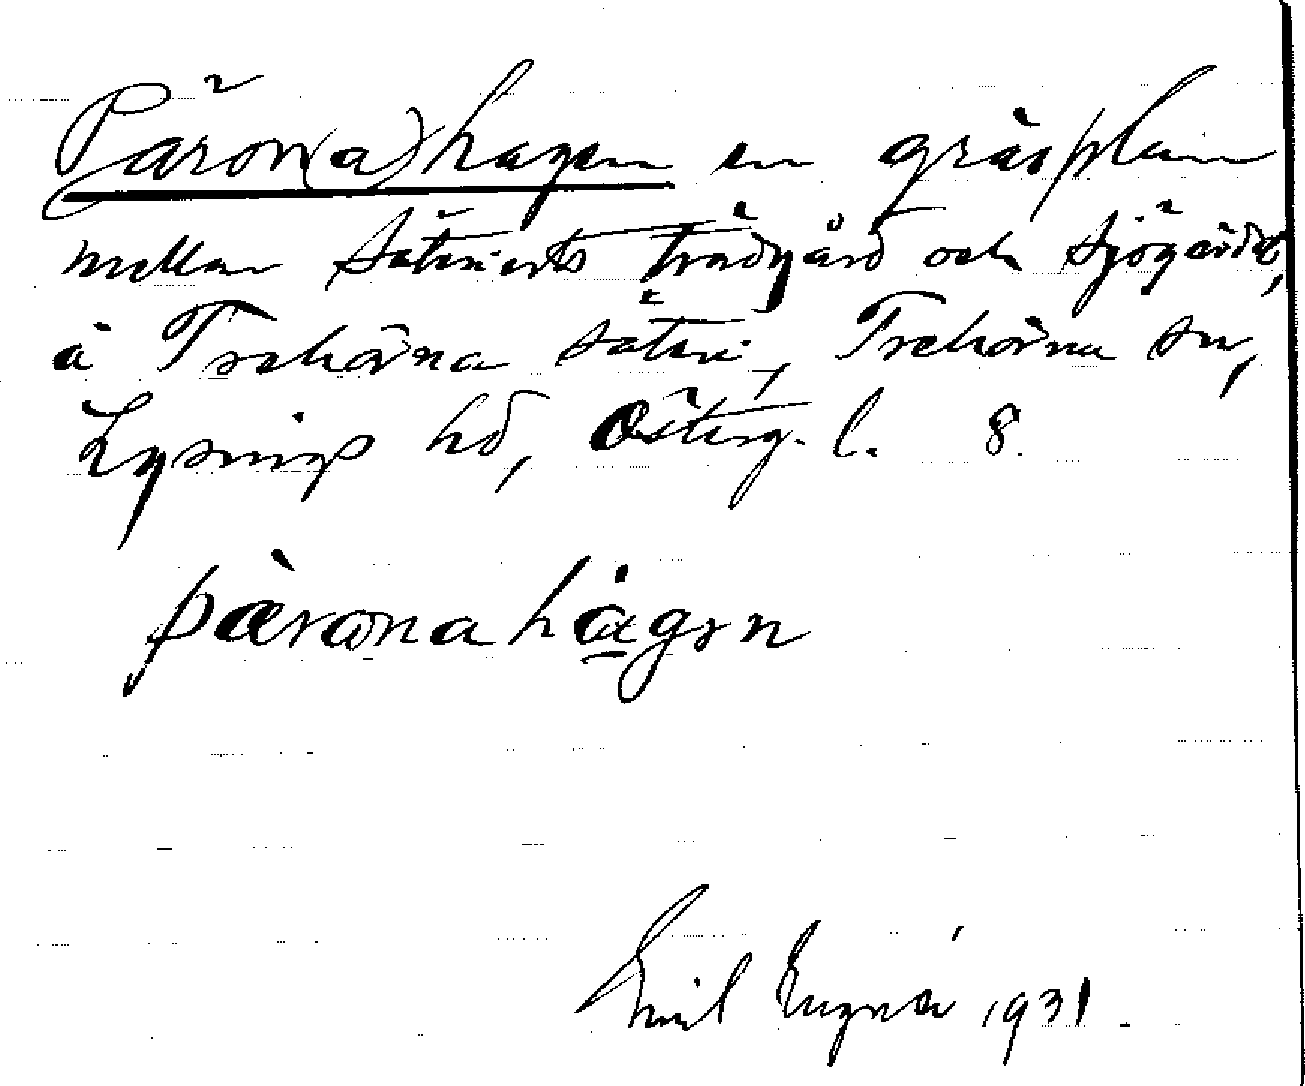 Päron(a)hagen en gräsplan
mellan säteriets trädgård och sjögärdet,
å Trehörna säteri, Trehörna sn,
Lysings hd, Österg. l. 8.
pæ̀ronahågen
Emil 1931.